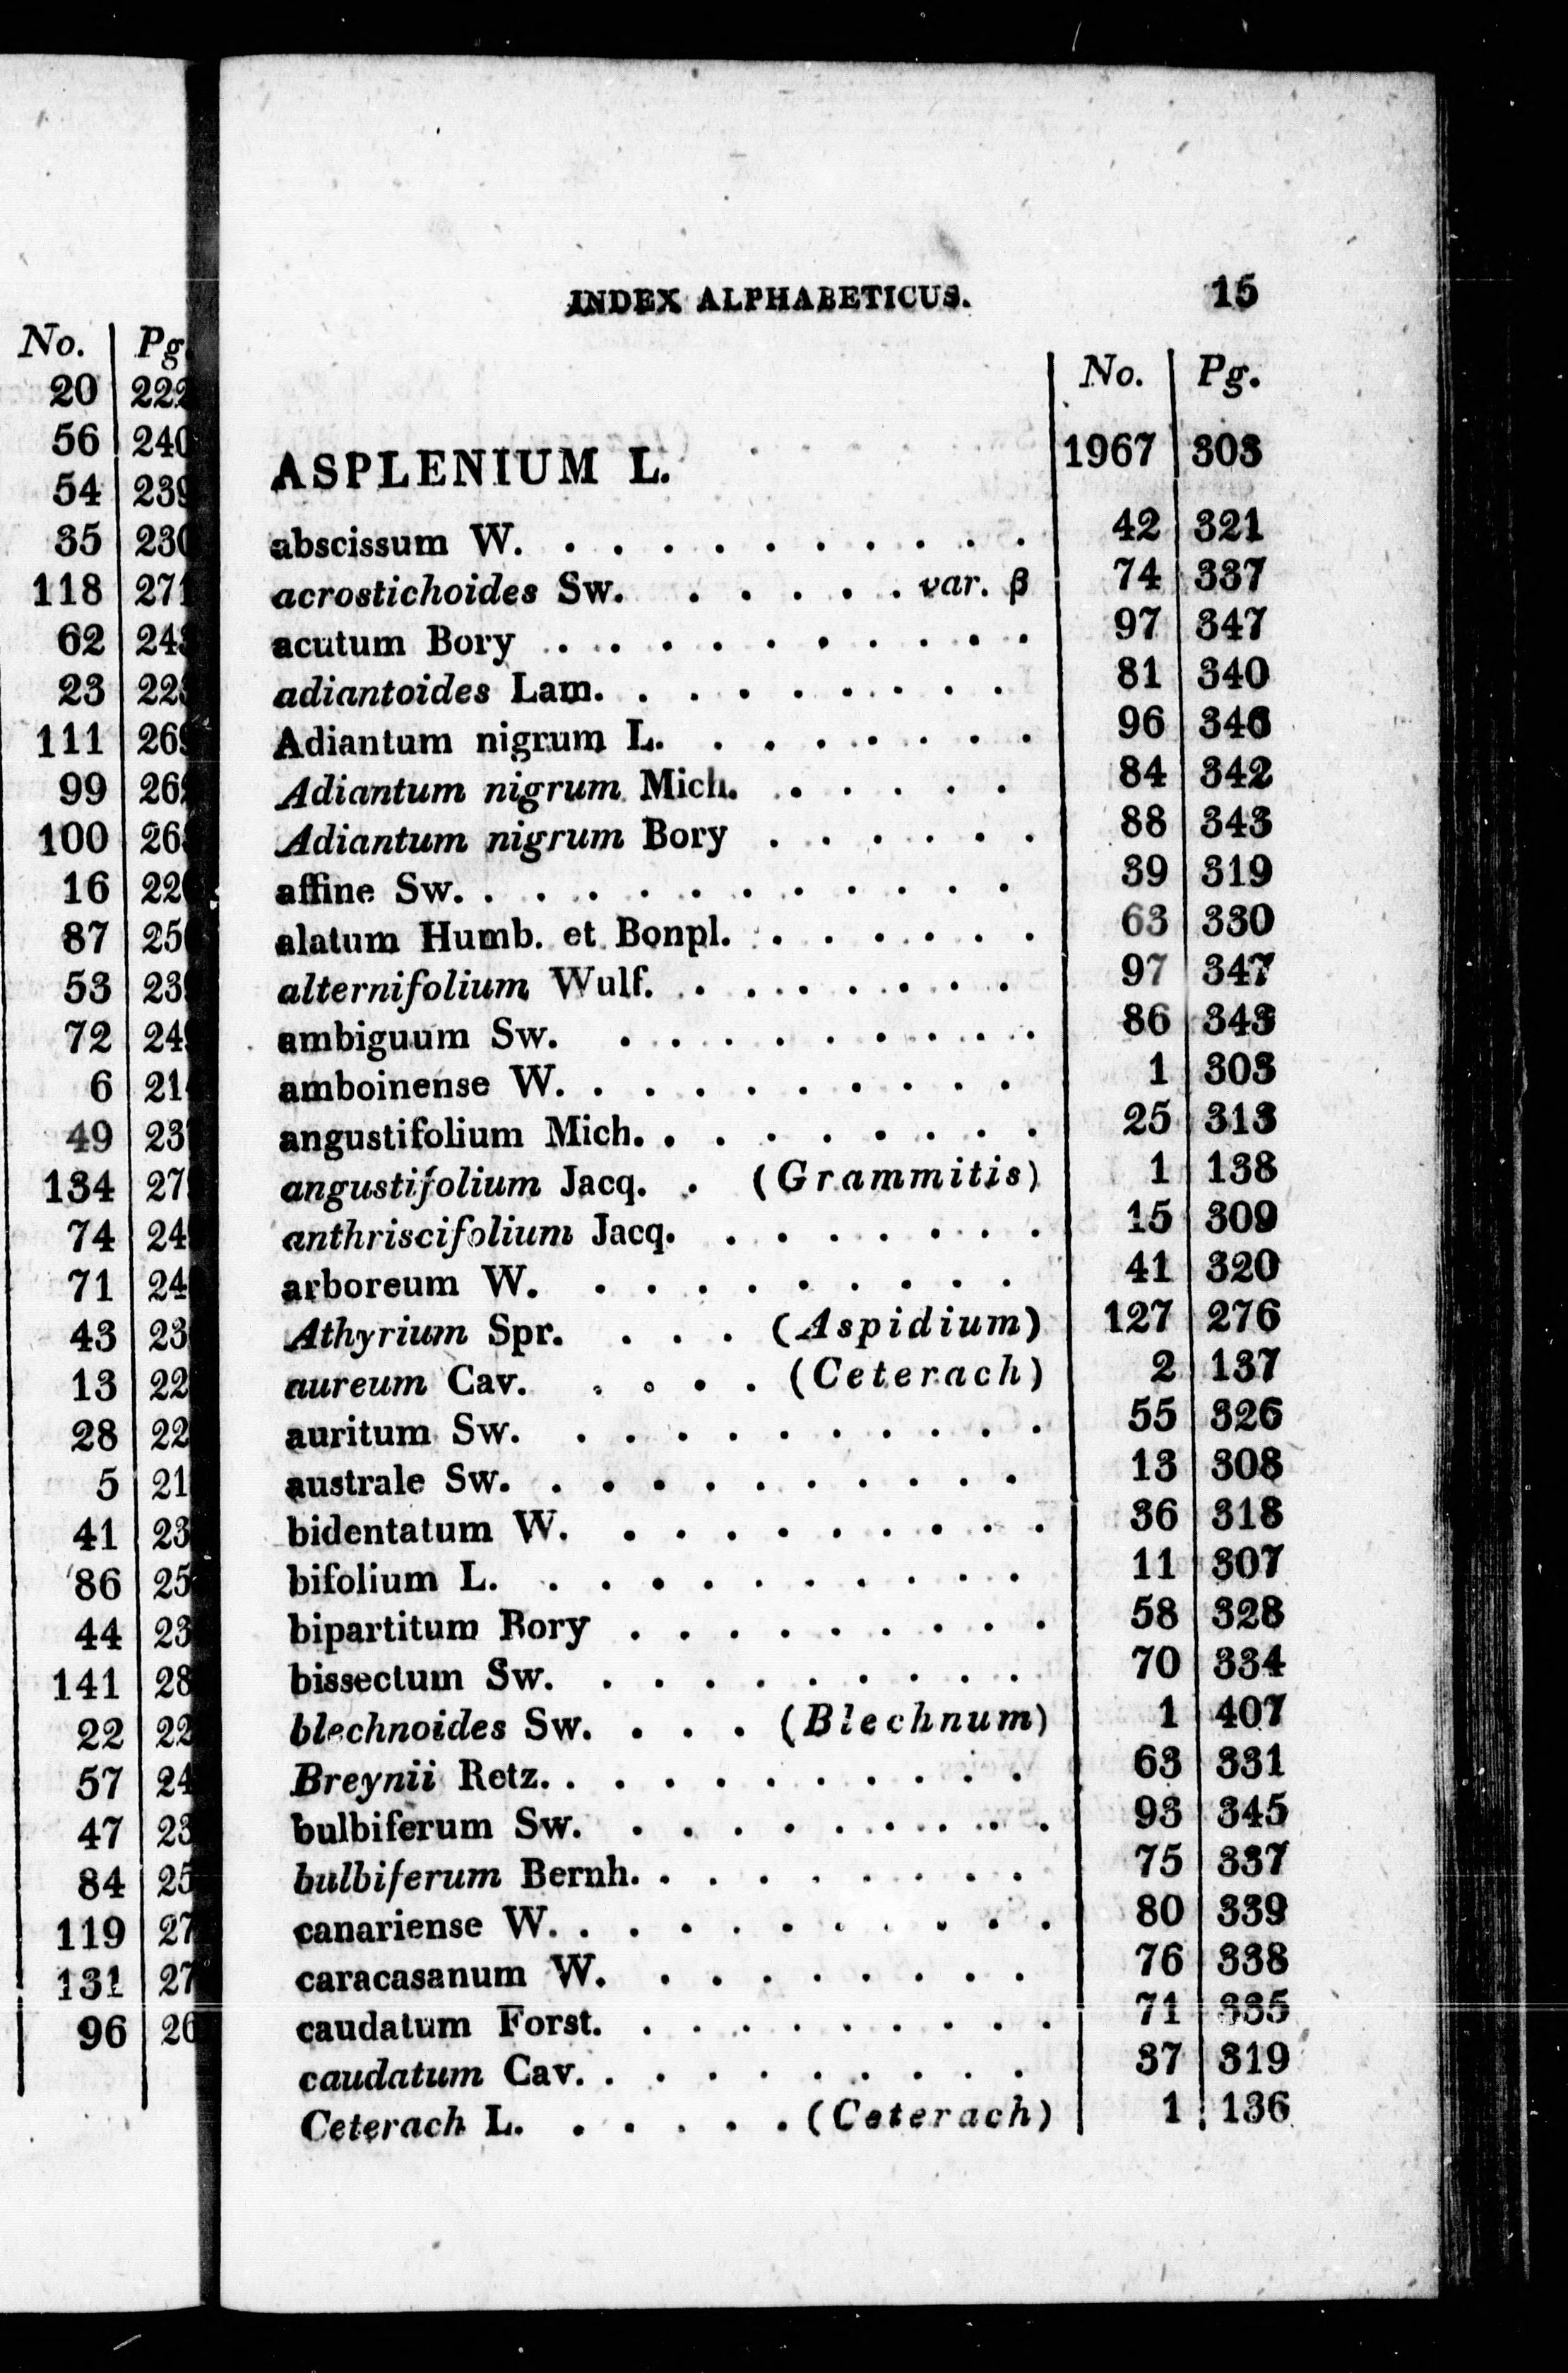 No. | Pg
20 | 222
56 | 240
54 | 239
35 | 230
118 | 271
62 | 243
23 | 223
111 | 269
99 | 26
100 | 26
16 | 220
87 | 25
53 | 23
72 | 24
6 | 21
49 | 23
134 | 27
74 | 24
71 | 24
43 | 23
13 | 22
28 | 22
5 | 21
41 | 23
86 | 25
44 | 23
141 | 28
22 | 22
57 | 24
47 | 23
84 | 25
119 | 27
131 | 27
96 | 26
INDEX ALPHABETICUS. 15
No. | Pg.
ASPLENIUM L. 1967 | 303
abscissum W. . . . . . . . . . . 42 | 321
acrostichoides Sw. . . . . . var. β 74 | 337
acutum Bory . . . . . . . . . . 97 | 347
adiantoides Lam. . . . . . . . . 81 | 340
Adiantum nigrum L. . . . . . . . 96 | 346
Adiantum nigrum Mich. . . . . . 84 | 342
Adiantum nigrum Bory . . . . . . 88 | 343
affine Sw. . . . . . . . . . . . 39 | 319
alatum Humb. et Bonpl. . . . . . . 63 | 330
alternifolium Wulf. . . . . . . . 97 | 347
ambiguum Sw. . . . . . . . . . 86 | 343
amboinense W. . . . . . . . . . 1 | 303
angustifolium Mich. . . . . . . . . 25 | 313
angustifolium Jacq. . (Grammitis) 1 | 138
anthriscifolium Jacq. . . . . . . . 15 | 309
arboreum W. . . . . . . . . . 41 | 320
Athyrium Spr. . . . (Aspidium) 127 | 276
aureum Cav. . . . . (Ceterach) 2 | 137
auritum Sw. . . . . . . . . . . 55 | 326
australe Sw. . . . . . . . . . . 13 | 308
bidentatum W. . . . . . . . . . 36 | 318
bifolium L. . . . . . . . . . . 11 | 307
bipartitum Bory . . . . . . . . . 58 | 328
bissectum Sw. . . . . . . . . . 70 | 334
blechnoides Sw. . . . (Blechnum) 1 | 407
Breynii Retz. . . . . . . . . . . 63 | 331
bulbiferum Sw. . . . . . . . . . 93 | 345
bulbiferum Bernh. . . . . . . . . 75 | 337
canariense W. . . . . . . . . . . 80 | 339
caracasanum W. . . . . . . . . 76 | 338
caudatum Forst. . . . . . . . . . 71 | 335
caudatum Cav. . . . . . . . . . 37 | 319
Ceterach L. . . . . . (Ceterach) 1 | 136